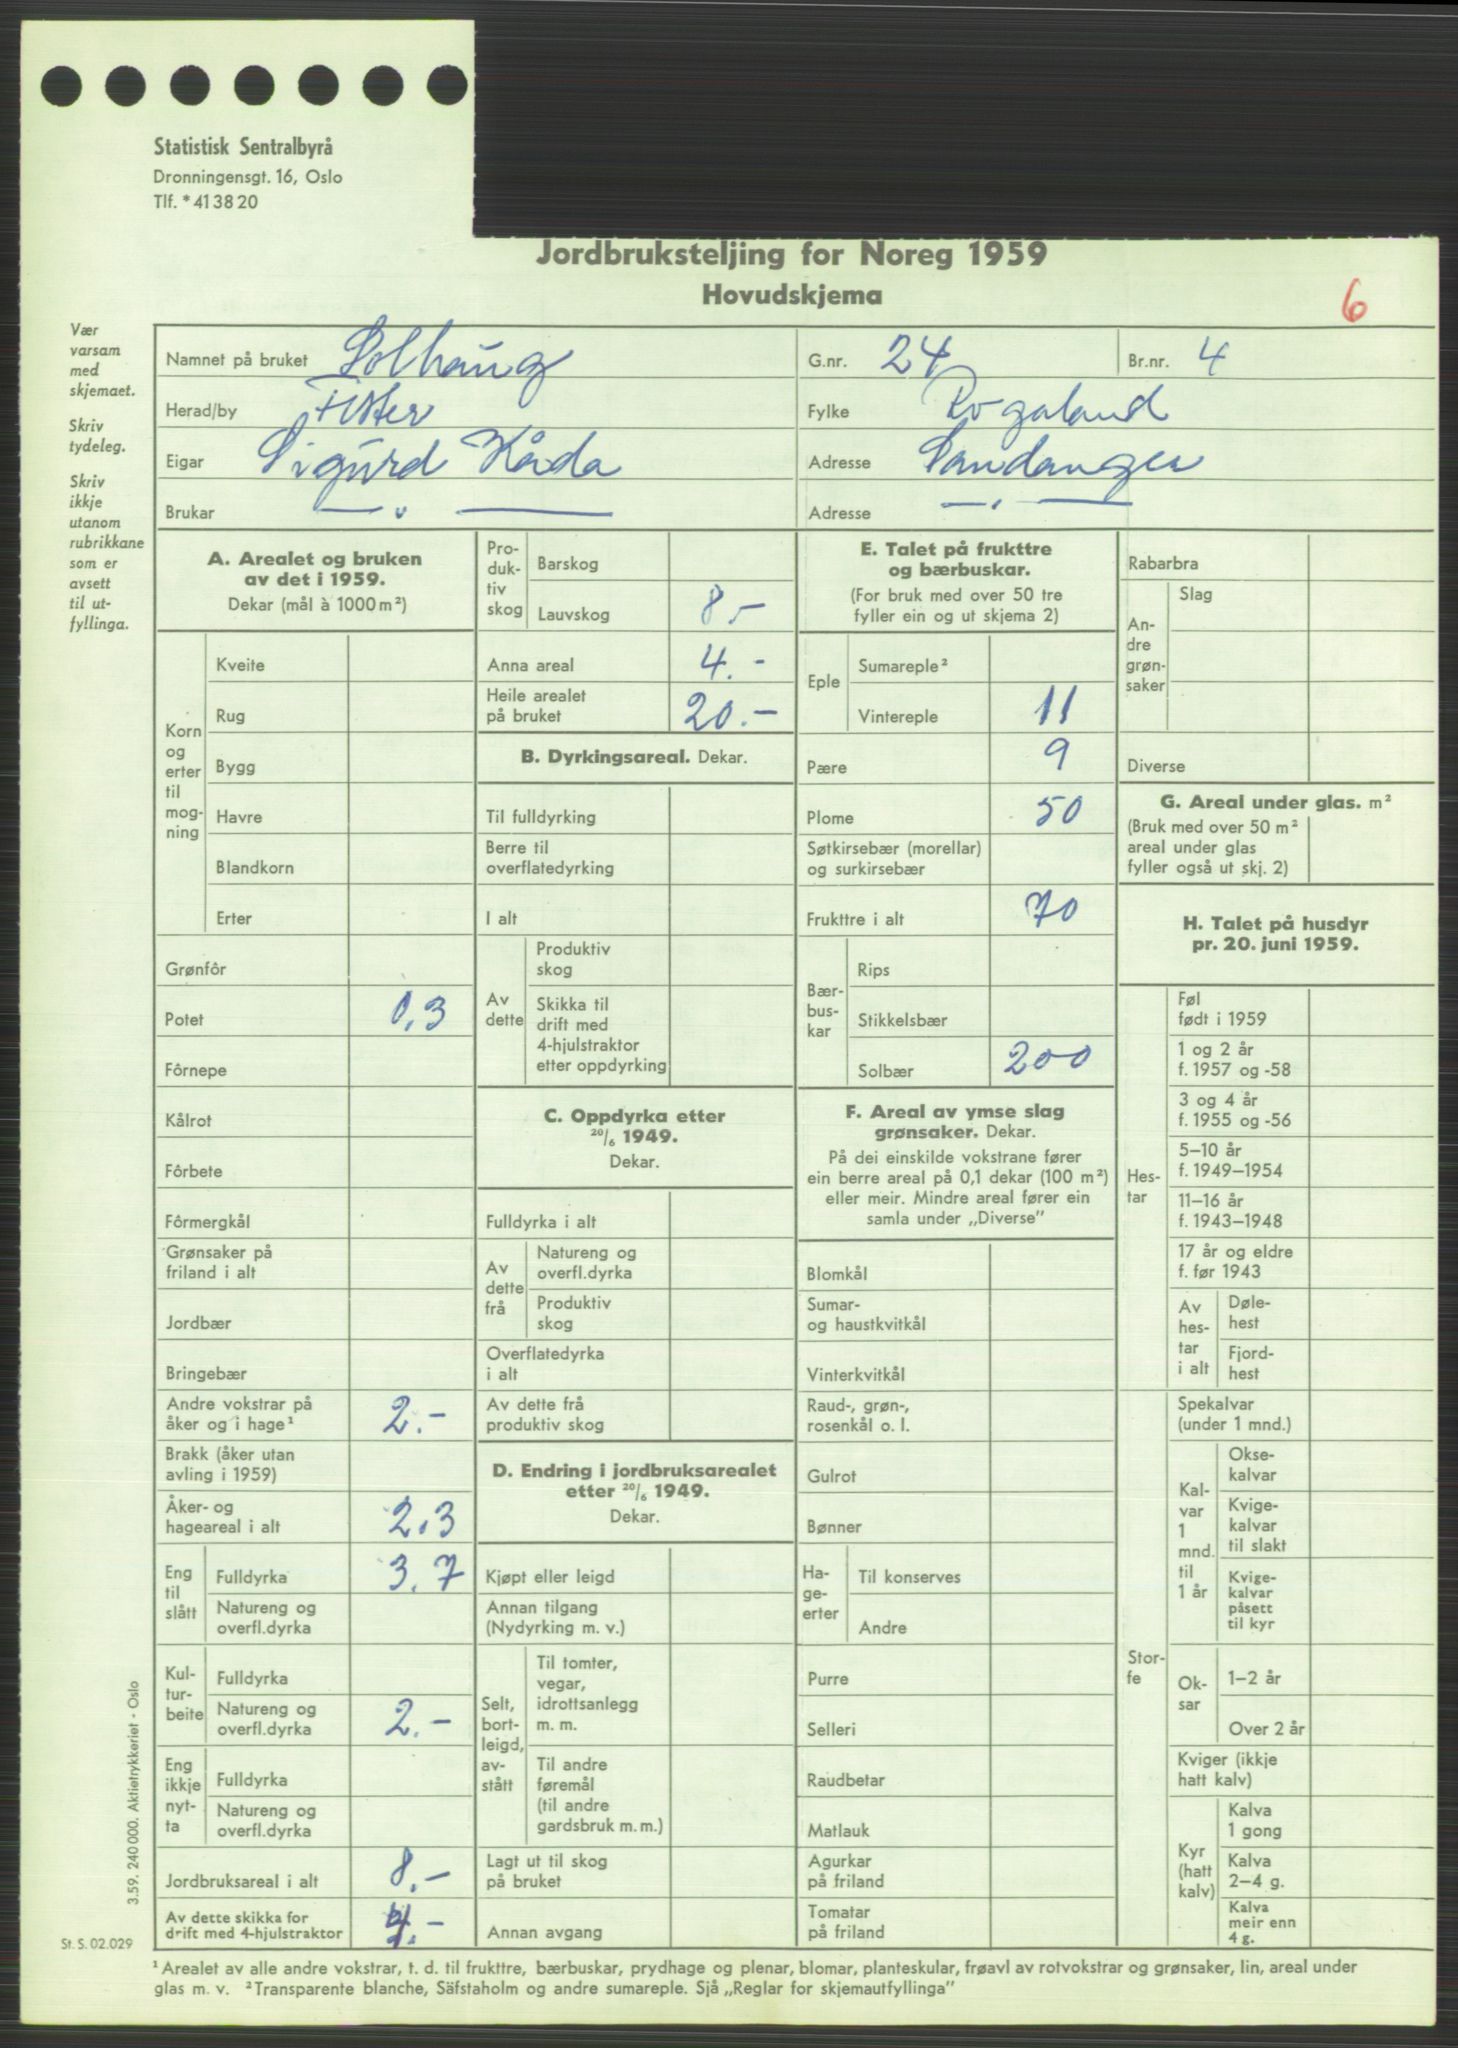 Statistisk Sentralbyrå
Dronningensgt. 16, Oslo
Tlf. * 41 38 20
Jordbruksteljing for Noreg 1959
Hovudskjema
6
Vær
varsam
med
skjemaet.
Skriv
tydeleg.
Skriv
ikkje
utanom
rubrikkane
som er
avsett
til ut-
fyllinga.
Namnet på bruket Solhaug G.nr. 24 Br.nr. 4
Herad/by Fister Fylke Rogaland
Eigar Sigurd Kåda Adresse Sandanger
Brukar — " — Adresse — " —
A. Arealet og bruken
av det i 1959.
Dekar (mål à 1000 m²)
Korn
og
erter
til
mog-
ning
Kveite
Rug
Bygg
Havre
Blandkorn
Erter
Grønfôr
Potet 0,3
Fôrnepe
Kålrot
Fôrbete
Fôrmergkål
Grønsaker på
friland i alt
Jordbær
Bringebær
Andre vokstrar på
åker og i hage¹ 2.-
Brakk (åker utan
avling i 1959)
Åker- og
hageareal i alt 2,3
Eng
til
slått
Fulldyrka 3,7
Natureng og
overfl.dyrka
Kul-
tur-
beite
Fulldyrka
Natureng og
overfl.dyrka 2.-
Eng
ikkje
nyt-
ta
Fulldyrka
Natureng og
overfl.dyrka
Jordbruksareal i alt 8.-
Av dette skikka for
drift med 4-hjulstraktor 4.-
Pro-
duk-
tiv
skog
Barskog
Lauvskog 8.-
Anna areal 4.-
Heile arealet
på bruket 20.-
B. Dyrkingsareal. Dekar.
Til fulldyrking
Berre til
overflatedyrking
I alt
Av
dette
Produktiv
skog
Skikka til
drift med
4-hjulstraktor
etter oppdyrking
C. Oppdyrka etter
20/6 1949.
Dekar.
Fulldyrka i alt
Av
dette
frå
Natureng og
overfl.dyrka
Produktiv
skog
Overflatedyrka
i alt
Av dette frå
produktiv skog
D. Endring i jordbruksarealet
etter 20/6 1949.
Dekar.
Kjøpt eller leigd
Annan tilgang
(Nydyrking m. v.)
Selt,
bort-
leigd,
av-
stått
Til tomter,
vegar,
idrottsanlegg
m. m.
Til andre
føremål
(til andre
gardsbruk m. m.)
Lagt ut til skog
på bruket
Annan avgang
E. Talet på frukttre
og bærbuskar.
(For bruk med over 50 tre
fyller ein og ut skjema 2)
Eple
Sumareple²
Vintereple 11
Pære 9
Plome 50
Søtkirsebær (morellar)
og surkirsebær
Frukttre i alt 70
Bær-
bus-
kar
Rips
Stikkelsbær
Solbær 200
F. Areal av ymse slag
grønsaker. Dekar.
På dei einskilde vokstrane fører
ein berre areal på 0,1 dekar (100 m²)
eller meir. Mindre areal fører ein
samla under „Diverse”
Blomkål
Sumar-
og haustkvitkål
Vinterkvitkål
Raud-, grøn-,
rosenkål o. l.
Gulrot
Bønner
Ha-
ge-
erter
Til konserves
Andre
Purre
Selleri
Raudbetar
Matlauk
Agurkar
på friland
Tomatar
på friland
Rabarbra
An-
dre
grøn-
saker
Slag
Diverse
G. Areal under glas. m²
(Bruk med over 50 m²
areal under glas
fyller også ut skj. 2)
H. Talet på husdyr
pr. 20. juni 1959.
Hes-
tar
Føl
født i 1959
1 og 2 år
f. 1957 og -58
3 og 4 år
f. 1955 og -56
5–10 år
f. 1949–1954
11–16 år
f. 1943–1948
17 år og eldre
f. før 1943
Av
hes-
tar
i alt
Døle-
hest
Fjord-
hest
Stor-
fe
Spekalvar
(under 1 mnd.)
Kal-
var
1
mnd.
til
1 år
Okse-
kalvar
Kvige-
kalvar
til slakt
Kvige-
kalvar
påsett
til kyr
Ok-
sar
1–2 år
Over 2 år
Kviger (ikkje
hatt kalv)
Kyr
(hatt
kalv)
Kalva
1 gong
Kalva
2–4 g.
Kalva
meir enn
4 g.
3.59. 240 000. Aktietrykkeriet - Oslo
St. S. 02.029
¹ Arealet av alle andre vokstrar, t. d. til frukttre, bærbuskar, prydhage og plenar, blomar, planteskular, frøavl av rotvokstrar og grønsaker, lin, areal under
glas m. v. ² Transparente blanche, Säfstaholm og andre sumareple. Sjå „Reglar for skjemautfyllinga”